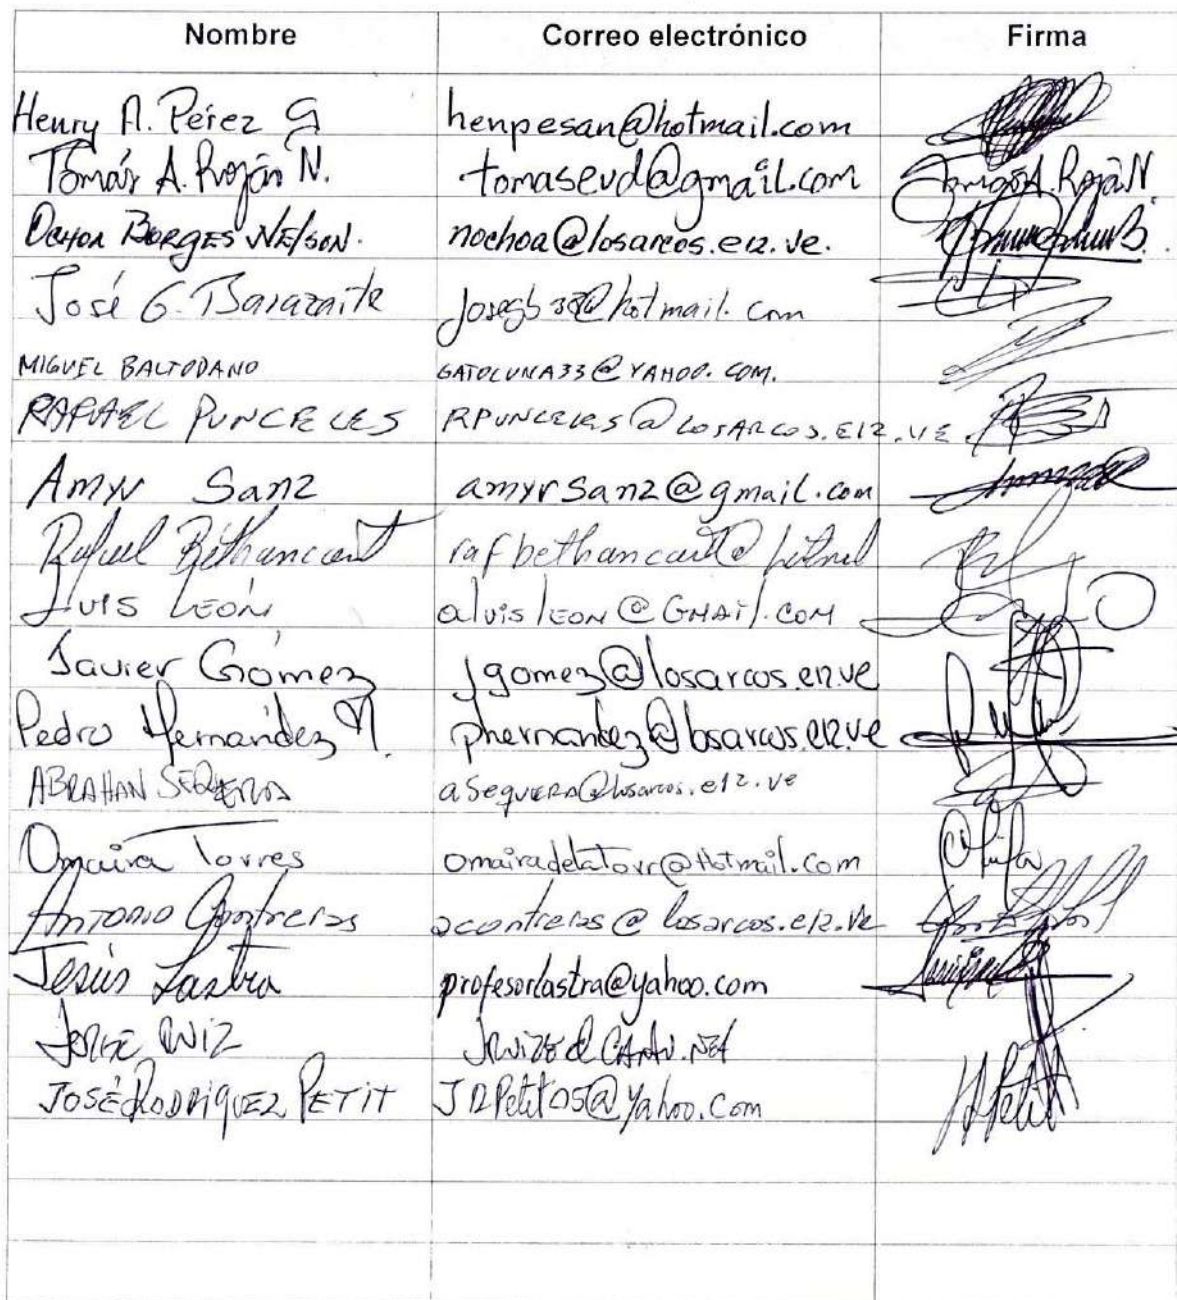 Nombre Correo electrónico Firma
Henry A. Pérez G henpesan@hotmail.com
Tomás A. Roján N. tomasevd@gmail.com Tomás A. Roján N.
Ochoa Borges Nelson. nochoa@losarcos.e12.ve.
José G. Barazarte josegb33@hotmail.com
MIGUEL BALTODANO GATOLUNA33@YAHOO.COM.
RAFAEL PUNCELES RPUNCELES@LOSARCOS.E12.VE.
Amyr Sanz amyrsanz@gmail.com
Rafael Bethancourt
LUIS LEÓN alvisleon@GMAIL.COM
Javier Gómez jgomez@losarcos.e12.ve
Pedro Hernández M. phernandez@losarcos.e12.ve
ABRAHAN SEQUERA asequera@losarcos.e12.ve
Omaira Torres omairadelatorr@Hotmail.com
Antonio Contreras acontreras@losarcos.e12.ve
Jesús Lastra profesorlastra@yahoo.com
JORGE RUIZ
JOSÉ RODRIGUEZ PETIT JRPetit05@yahoo.com JRPetit